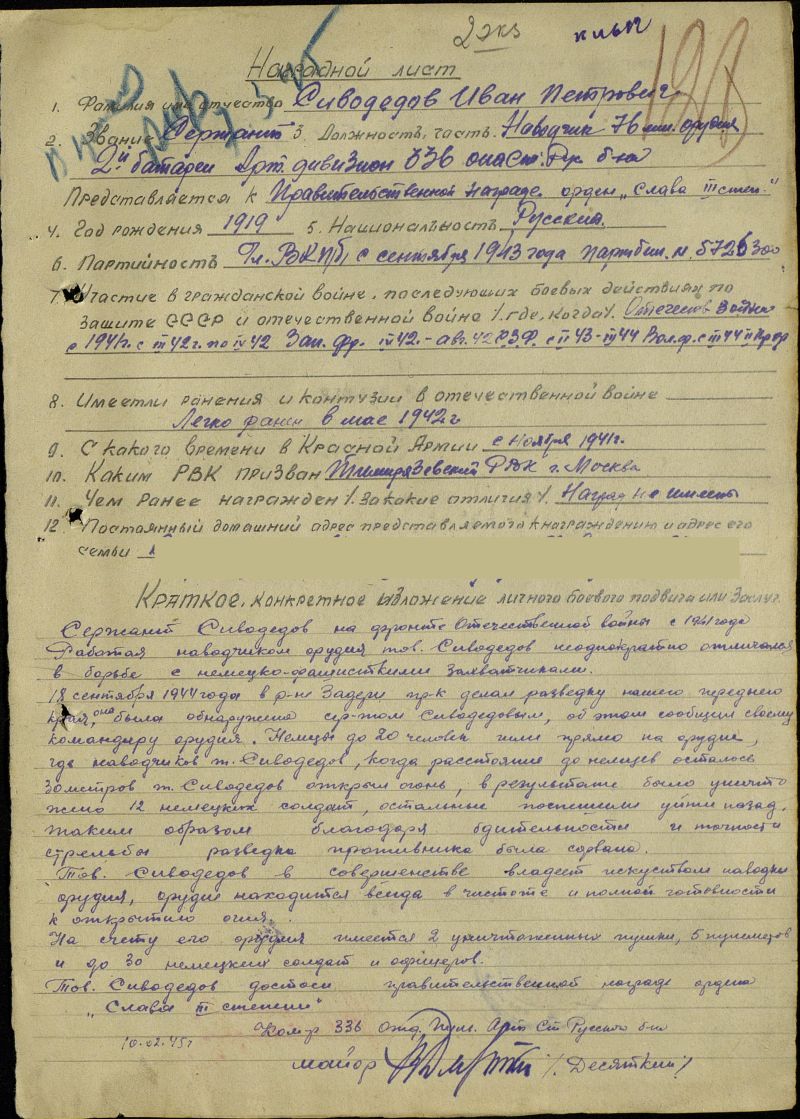 2 экз
Наградной лист
1. Фамилия имя отчество Сиводедов Иван Петрович
2. Звание Сержант 3. Должность, часть Наводчик 76 мм. орудия
2й батареи Арт. дивизион 336
Представляется к Правительственной награде орден „Слава III степ."
4. Год рождения 1919 5. Национальность Русский
6. Партийность Чл. ВКП(б) с сентября 1943 года партбил. № 5726300
7. Участие в гражданской войне, последующих боевых действиях по
защите СССР и отечественной война /. где, когда /. Отечеств. война
с 1941г. с III 42г. по IV 42 Зап. фр. IV 42. - авг. 42 с II 43 - III 44 Вол. ф. с III 44 II
8. Имеет ли ранения и контузии в отечественной войне
Легко ранен в мае 1942 г
9. С какого времени в Красной Армии с ноября 1941г.
10. Каким РВК призван Тимирязевский РВК г. Москва
11. Чем ранее награжден /. за какие отличия /. Наград не имеет
12. Постоянный домашний адрес представляемого к награждению и адрес его
семьи
Краткое, конкретное изложение личного боевого подвига или заслуг.
Сержант Сиводедов на фронте Отечественной войны с 1941 года
Работая наводчиком орудия тов. Сиводедов неоднократно отличался
в борьбе с немецко-фашисткими захватчиками.
18 сентября 1944 года в р-не Задери пр-к делал разведку нашего переднего
края, она была обнаружена сер-том Сиводедовым, об этом сообщил своему
командиру орудия. Немцы до 20 человек шли прямо на орудие,
где наводчиком т. Сиводедов, когда расстояние до немцев осталось
30 метров т. Сиводедов открыл огонь, в результате было уничто
жено 12 немецких солдат, остальные поспешили уйти назад.
Таким образом благодаря бдительности и точности
стрельбы разведка противника была сорвана.
Тов. Сиводедов в совершенстве владеет искуством наводки
орудия, орудие находится всегда в чистоте и полной готовности
к открытию огня.
На счету его орудия имеется 2 уничтоженных пушки, 5 пулеметов
и до 30 немецких солдат и офицеров.
Тов. Сиводедов достоин правительственной награде ордена
„Слава III степени"
Ком-р 336 отд. Пул. Арт
10.02.45г
майор /. Десяткин /